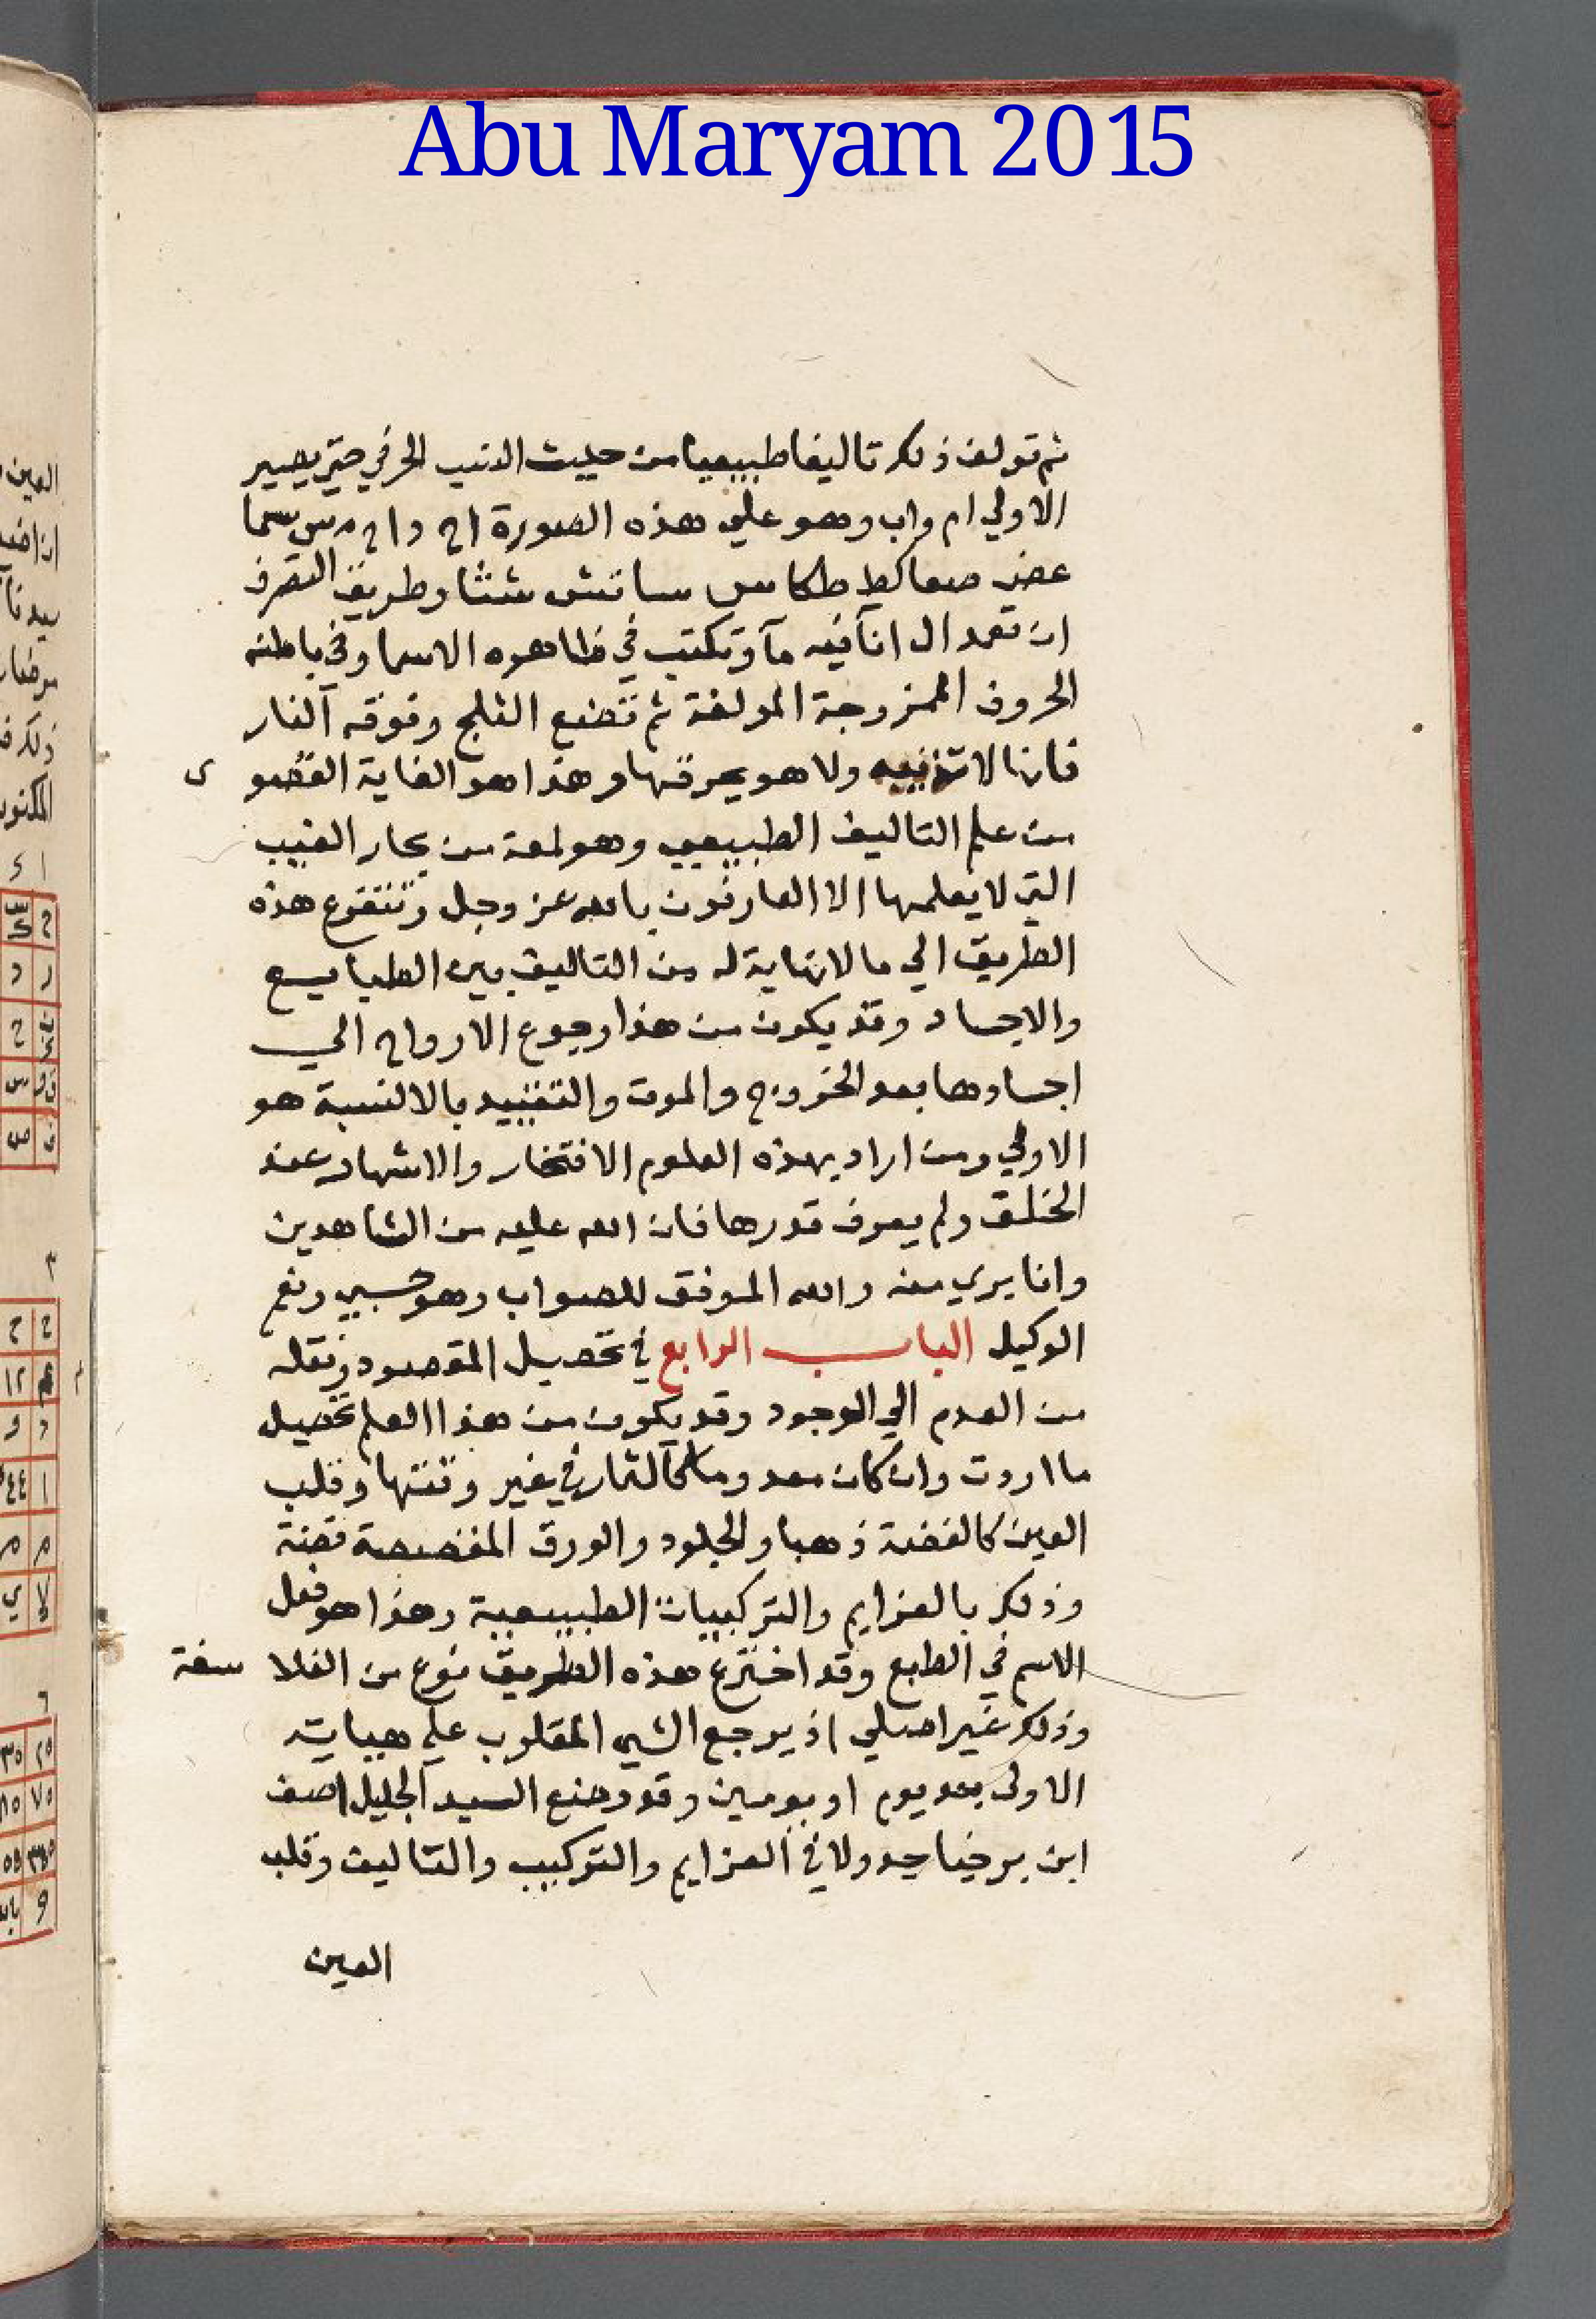 Abu Maryam 2015
ثم تولف ذلك تاليفا طبيعيا من حيث النسب الحرفي حتي يصير
الاولي ام واب وهو علي هذه الصورة اح د اح
وطريق التصرف
ان تعمد ال انآ فيه مآ وتكتب في ظاهره الاسما وفي باطنه
الحروف الممزوجة المولفة ثم تضع الثلج وفوقه آلنار
فانها لا تذيبه ولا هو يحرقها وهذا هو الغاية القصو ى
من علم التاليف الطبيعي وهو لمعة من بحار الغيب
التي لا يعلمها الا العارفون بالله عز وجل وتتفرع هذه
الطريق الي ما لا نهاية له من التاليف بين الطبايع
والاجساد وقد يكون من هذا رجوع الارواح الي
اجسادها بعد الخروج والموت بالالنسبة هو
الاولي ومن اراد بهذه العلوم الافتخار والاشهار عند
الخلق ولم يعرف قدرها فان الله عليه من الشاهدين
وانا بري منه والله الموفق للصواب وهو حسبي ونعم
الوكيل الباب الرابع في تحصيل المقصود ونقله
من العدم الي الوجود وقد يكون من هذا العلم تحصيل
ما اردت وان كان معدوما كآلثمار في غير وقتها وقلب
العين كالفضة ذهبا والجلود والورق المقصصة فضة
وذلك بالعزايم والتركيبات الطبيعية وهذا هو فعل
الاسم في الطبع وقد اخترع هذه الطريق نوع من الفلا سفة
وذلك غير اصلي اذ يرجع الشي المقلوب علي هياته
الاولى بعد يوم او يومين وقد وضع السيد الجليل اصف
ابن برخيا جدولا في العزايم والتركيب والتاليف وقلب
العين